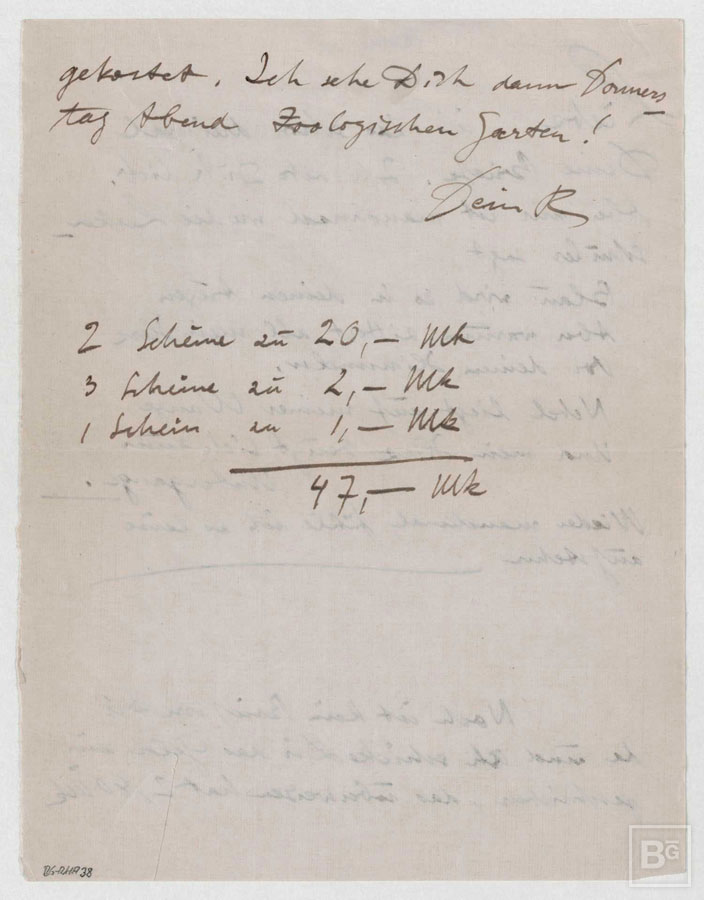 gekostet. Ich sehe Dich dann Donners
tag Abend Zoologischen Garten!
Dein R
2 Scheine zu 20,— Mk
3 Scheine zu 2,— Mk
1 Schein zu 1,— Mk
47,— Mk
BG-RHA 38
BG